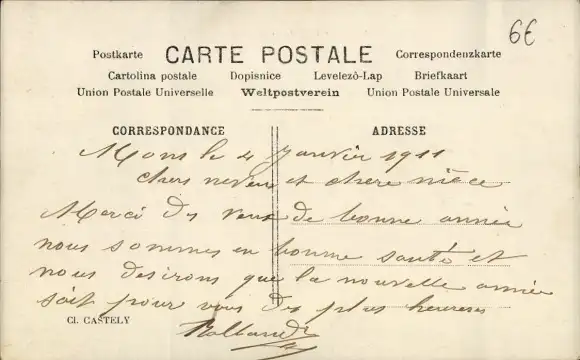 6€
Postkarte CARTE POSTALE Correspondenzkarte
Cartolina postale Dopisnice Levelezö-Lap Briefkaart
Union Postale Universelle Weltpostverein Union Postale Universale
CORRESPONDANCE ADRESSE
Mons le 4 Janvier 1911
chers neveu et chere nièce
Merci des vœux de bonne année
nous sommes en bonne santé et
nous desirons que la nouvelle année
soit pour vous des plus heureuse
Cl. CASTELY